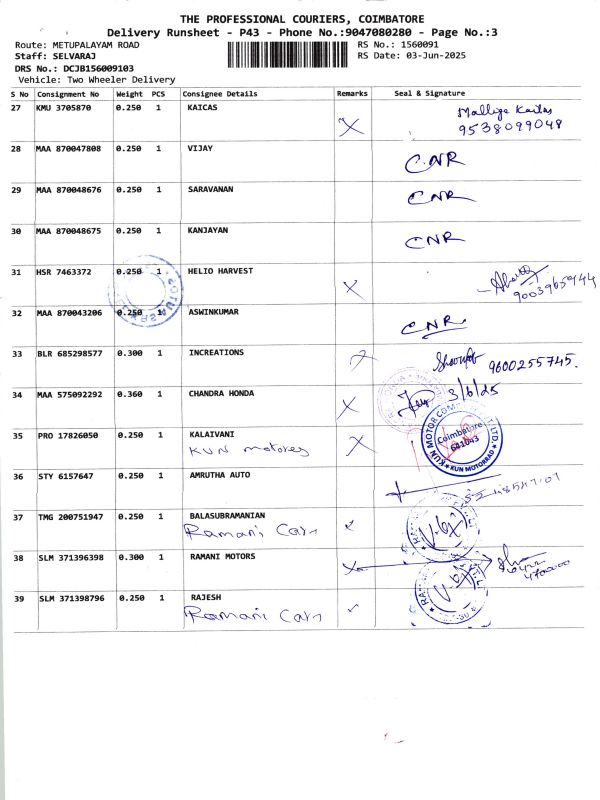 THE PROFESSIONAL COURIERS, COIMBATORE
Delivery Runsheet - P43 - Phone No.:9047080280 - Page No.:3
Route: METUPALAYAM ROAD RS No.: 1560091
Staff: SELVARAJ RS Date: 03-Jun-2025
DRS No.: DCJB156009103
Vehicle: Two Wheeler Delivery
S No Consignment No Weight PCS Consignee Details Remarks Seal & Signature
27 KMU 3705870 0.250 1 KAICAS Mallige Kaitas
9538099048
28 MAA 870047808 0.250 1 VIJAY CNR
29 MAA 870048676 0.250 1 SARAVANAN CNR
30 MAA 870048675 0.250 1 KANJAYAN CNR
31 HSR 7463372 0.250 1 HELIO HARVEST
9003965944
32 MAA 870043206 0.250 1 ASWINKUMAR CNR
33 BLR 685298577 0.300 1 INCREATIONS 9600255745.
34 MAA 575092292 0.360 1 CHANDRA HONDA 3/6/25
35 PRO 17826050 0.250 1 KALAIVANI KUN MOTOR COM LTD. Coimbatore 641043 KUN MOTORRAD
KUN motores
36 STY 6157647 0.250 1 AMRUTHA AUTO
37 TMG 200751947 0.250 1 BALASUBRAMANIAN
Ramani Cars
38 SLM 371396398 0.300 1 RAMANI MOTORS
39 SLM 371398796 0.250 1 RAJESH
Ramani Cars